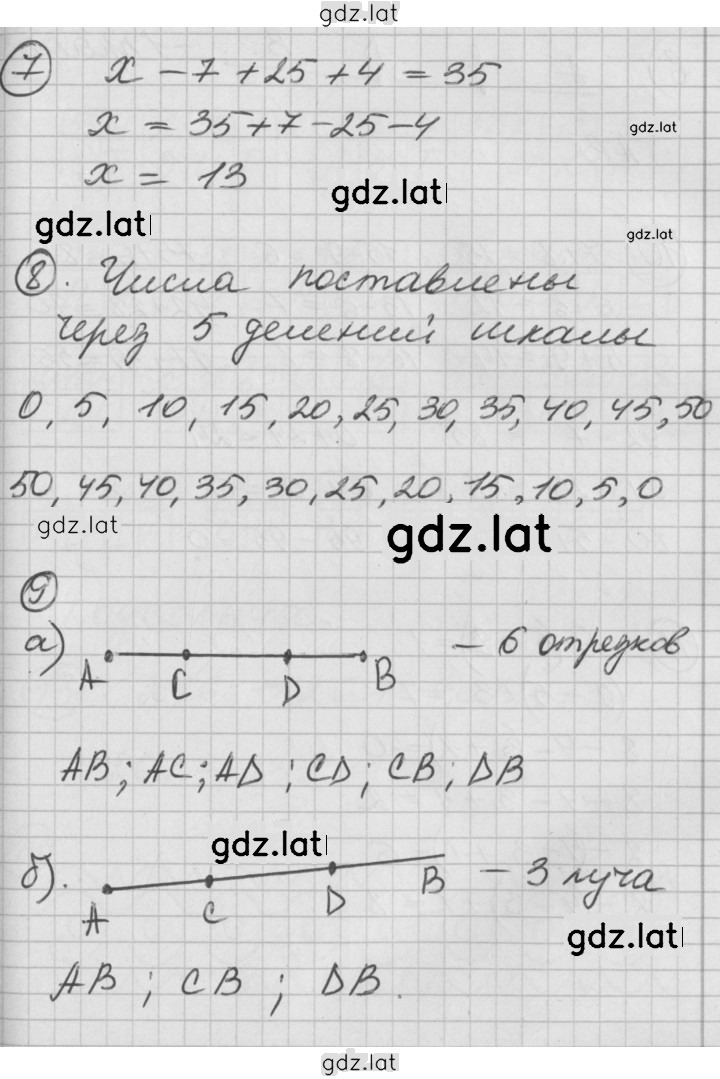 gdz.lat
7 x - 7 + 25 + 4 = 35
x = 35 + 7 - 25 - 4
gdz.lat
x = 13
gdz.lat
gdz.lat
gdz.lat
8. Числа поставлены
через 5 делений шкалы
0, 5, 10, 15, 20, 25, 30, 35, 40, 45, 50
50, 45, 40, 35, 30, 25, 20, 15, 10, 5, 0
gdz.lat
gdz.lat
9
а) A C D B - 6 отрезков
AB; AC; AD; CD; CB; DB
gdz.lat
б). A C D B - 3 луча
gdz.lat
AB; CB; DB.
gdz.lat